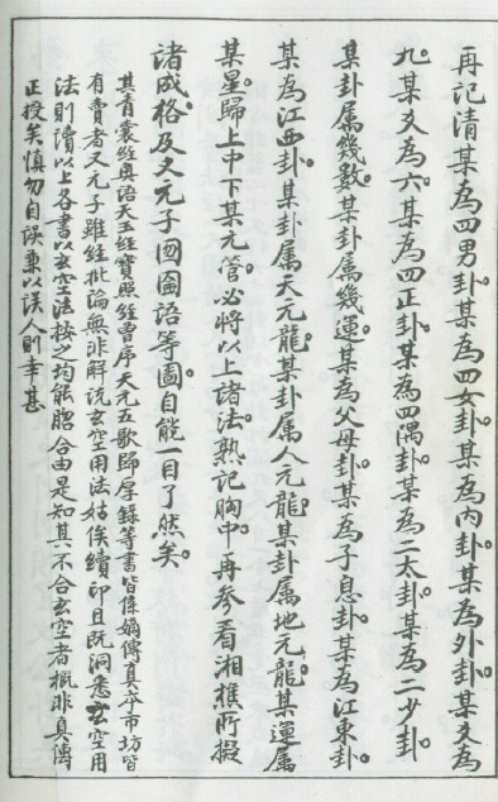 再記清某為四男卦。某為四女卦。某為內卦。某為外卦。某爻為
九。某爻為六。某為四正卦。某為四隅卦。某為二太卦。某為二少卦。
某卦属幾數。某卦属幾運。某為父母卦。某為子息卦。某為江東卦。
某為江西卦。某卦属天元龍。某卦属人元龍。某卦属地元龍。某運属
某星。歸上中下某元管。必將以上諸法。熟記胸中。再參看湘樵所擬
諸成格及文元子図圖語等圖。自能一目了然矣。
其青囊經奧語天玉經寶照經曹序天元五歌歸厚錄等書皆係嫡傳真本市坊皆
有賣者文元子雖經批論無非解説玄空用法姑俟續印且既洞悉玄空用
法則讀以上各書以玄空法按之均能脗合由是知其不合玄空者概非真傳
正授矣慎勿自誤兼以誤人則幸甚